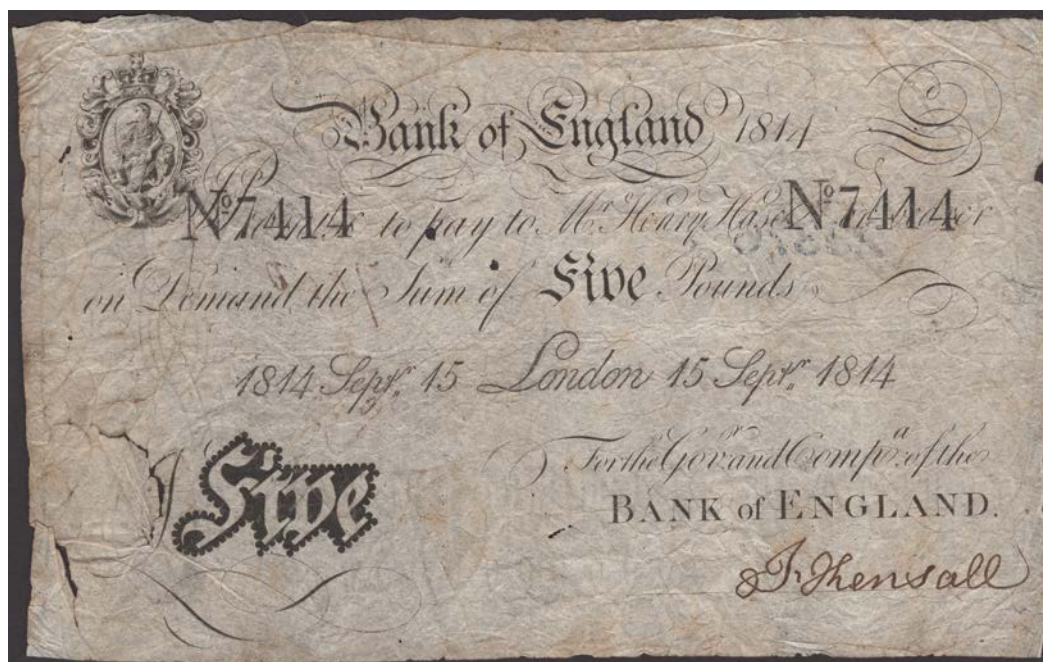 Bank of England 1814
Nº7414 to pay to Mr. Henry Hase Nº7414
on Demand the Sum of Five Pounds
1814 Septr. 15 London 15 Septr. 1814
For the Govr. and Compa. of the
BANK of ENGLAND.
Five